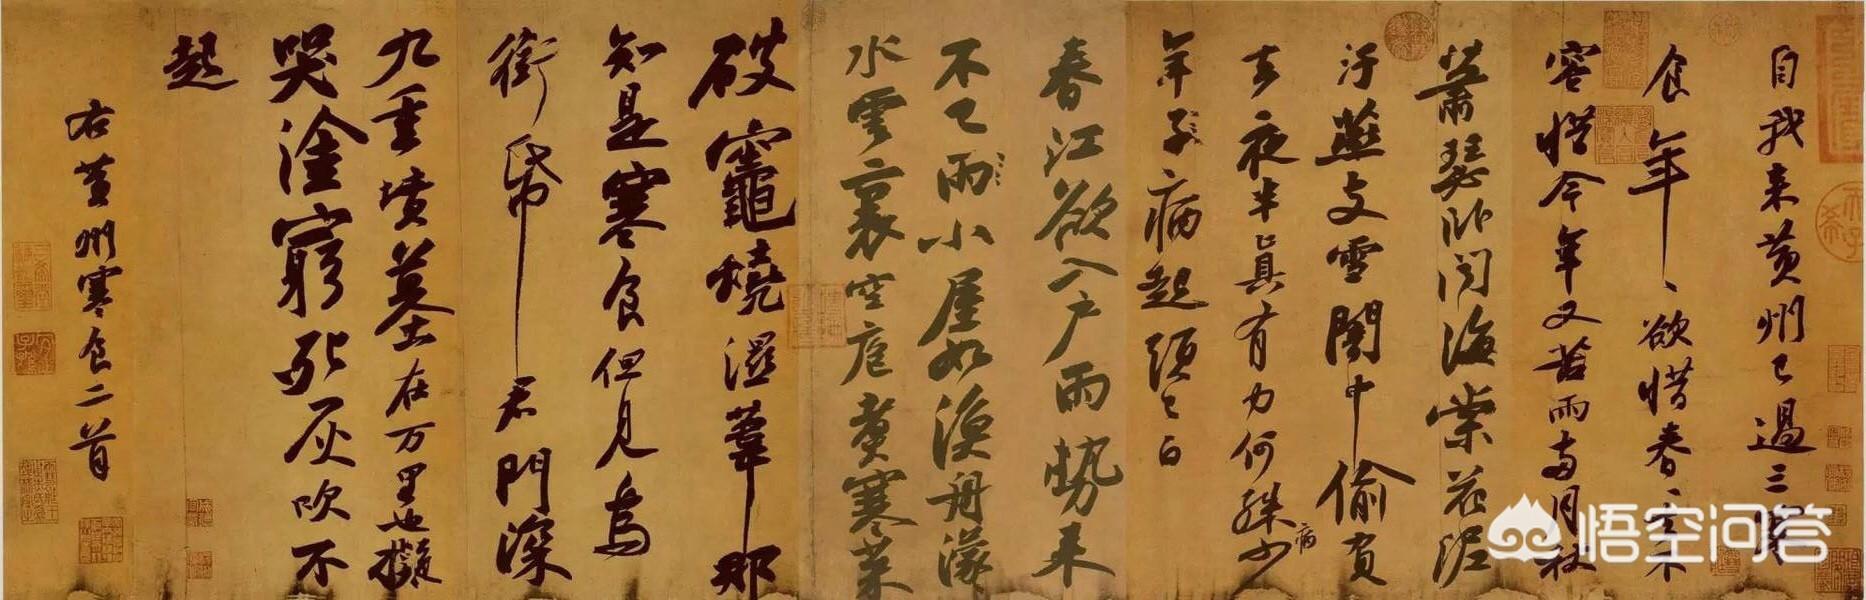 自我来黄州已過三寒
食年〻欲惜春〻不
容惜今年又苦雨兩月秋
蕭瑟臥聞海棠花泥
汙燕支雪闇中偷負
去夜半真有力何殊少
病
年子病起頭已白
春江欲入戶雨勢来
不已雨小屋如漁舟濛
水雲裏空庖煑寒菜
破竈燒濕葦那
知是寒食但見烏
銜帋君門深
九重墳墓在万里也擬
哭塗窮死灰吹不
起
右黄州寒食二首
悟空问答